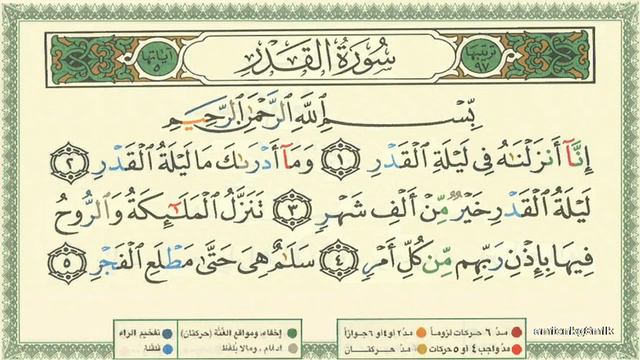 ترتيبها ٩٧ سُورَةُ القَدْرِ آياتها ٥
بِسْمِ ٱللَّهِ ٱلرَّحْمَٰنِ ٱلرَّحِيمِ
إِنَّآ أَنزَلْنَٰهُ فِى لَيْلَةِ ٱلْقَدْرِ ١ وَمَآ أَدْرَىٰكَ مَا لَيْلَةُ ٱلْقَدْرِ ٢
لَيْلَةُ ٱلْقَدْرِ خَيْرٌ مِّنْ أَلْفِ شَهْرٍ ٣ تَنَزَّلُ ٱلْمَلَٰٓئِكَةُ وَٱلرُّوحُ
فِيهَا بِإِذْنِ رَبِّهِم مِّن كُلِّ أَمْرٍ ٤ سَلَٰمٌ هِىَ حَتَّىٰ مَطْلَعِ ٱلْفَجْرِ ٥
مدّ ٦ حركات لزوماً مدّ ٢ او ٤ او ٦ جوازاً إخفاء، ومواقع الغنّة (حركتان) تفخيم الراء
مدّ واجب ٤ او ٥ حركات مدّ حركتان ادغام، ومالا يلفظ قلقلة